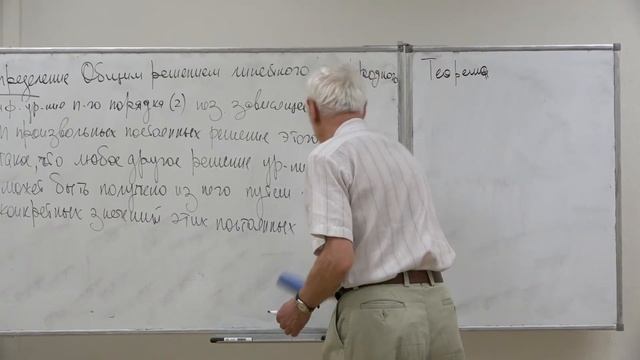 пределение Общим решением линейного родного
иф. ур-ние n-го порядка (2) наз. зависящее
n произвольных постоянных решение этого
такое, что любое другое решение ур-ни
может быть получено из него путем
конкретных значений этих постоянных
Теорема